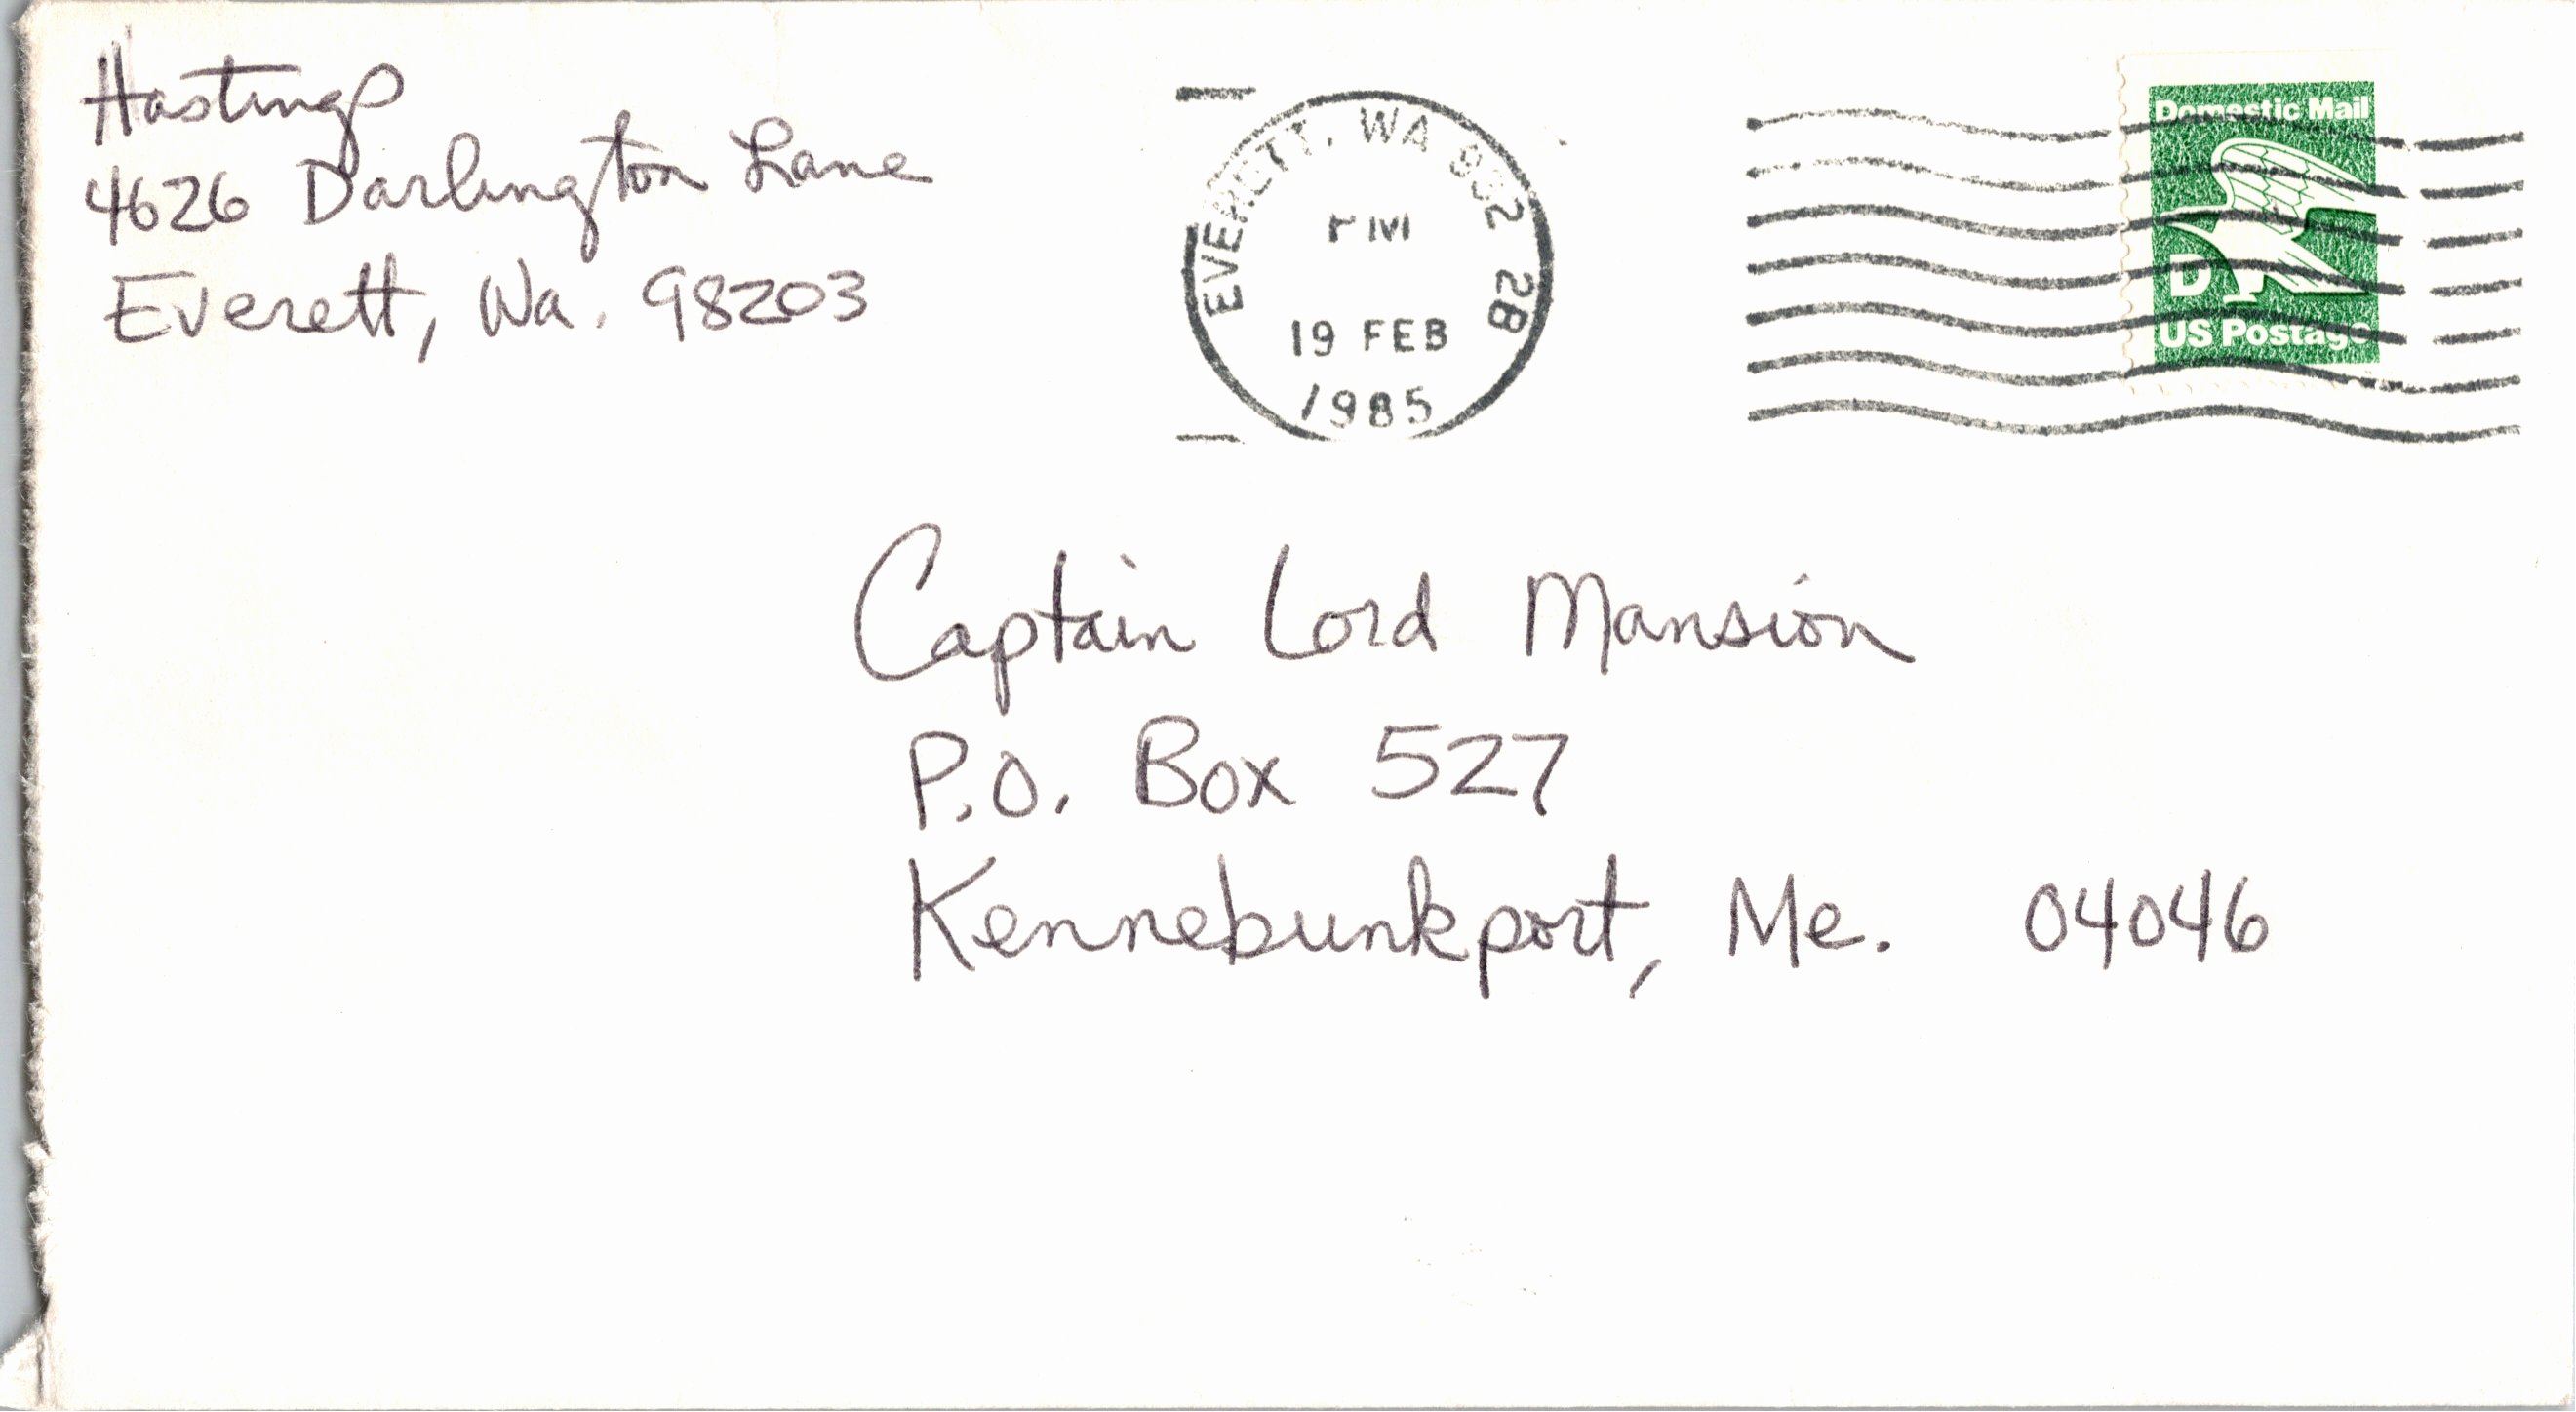 Hastings
4626 Darlington Lane
Everett, Wa. 98203
EVERETT, WA 982 2B
PM
19 FEB
1985
Domestic Mail
D
US Postage
Captain Lord Mansion
P.O. Box 527
Kennebunkport, Me. 04046